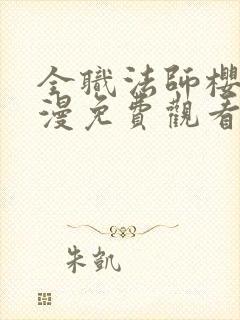 全職法師櫻
漫免費觀看
朱凱